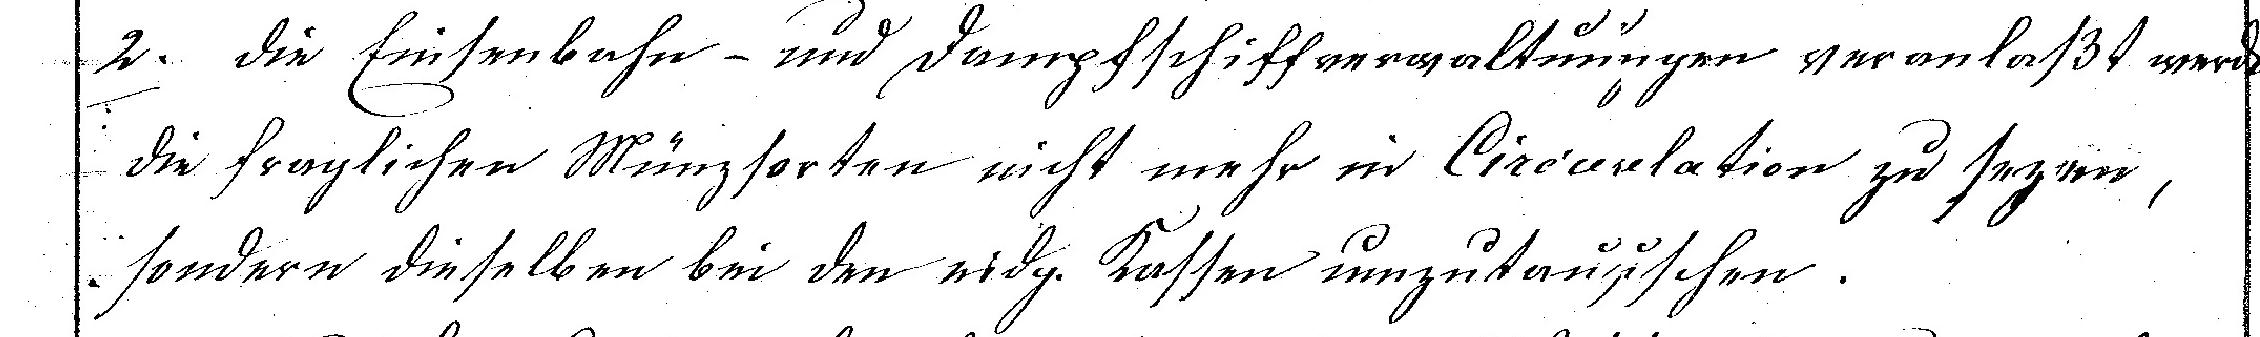 2. die Eisenbahn- und Dampfschiffverwaltungen veranlaßt werd
die fraglichen Münzsorten nicht mehr in Circulation zu sezen,
sondern dieselben bei den eidg. Kassen umzutauschen.